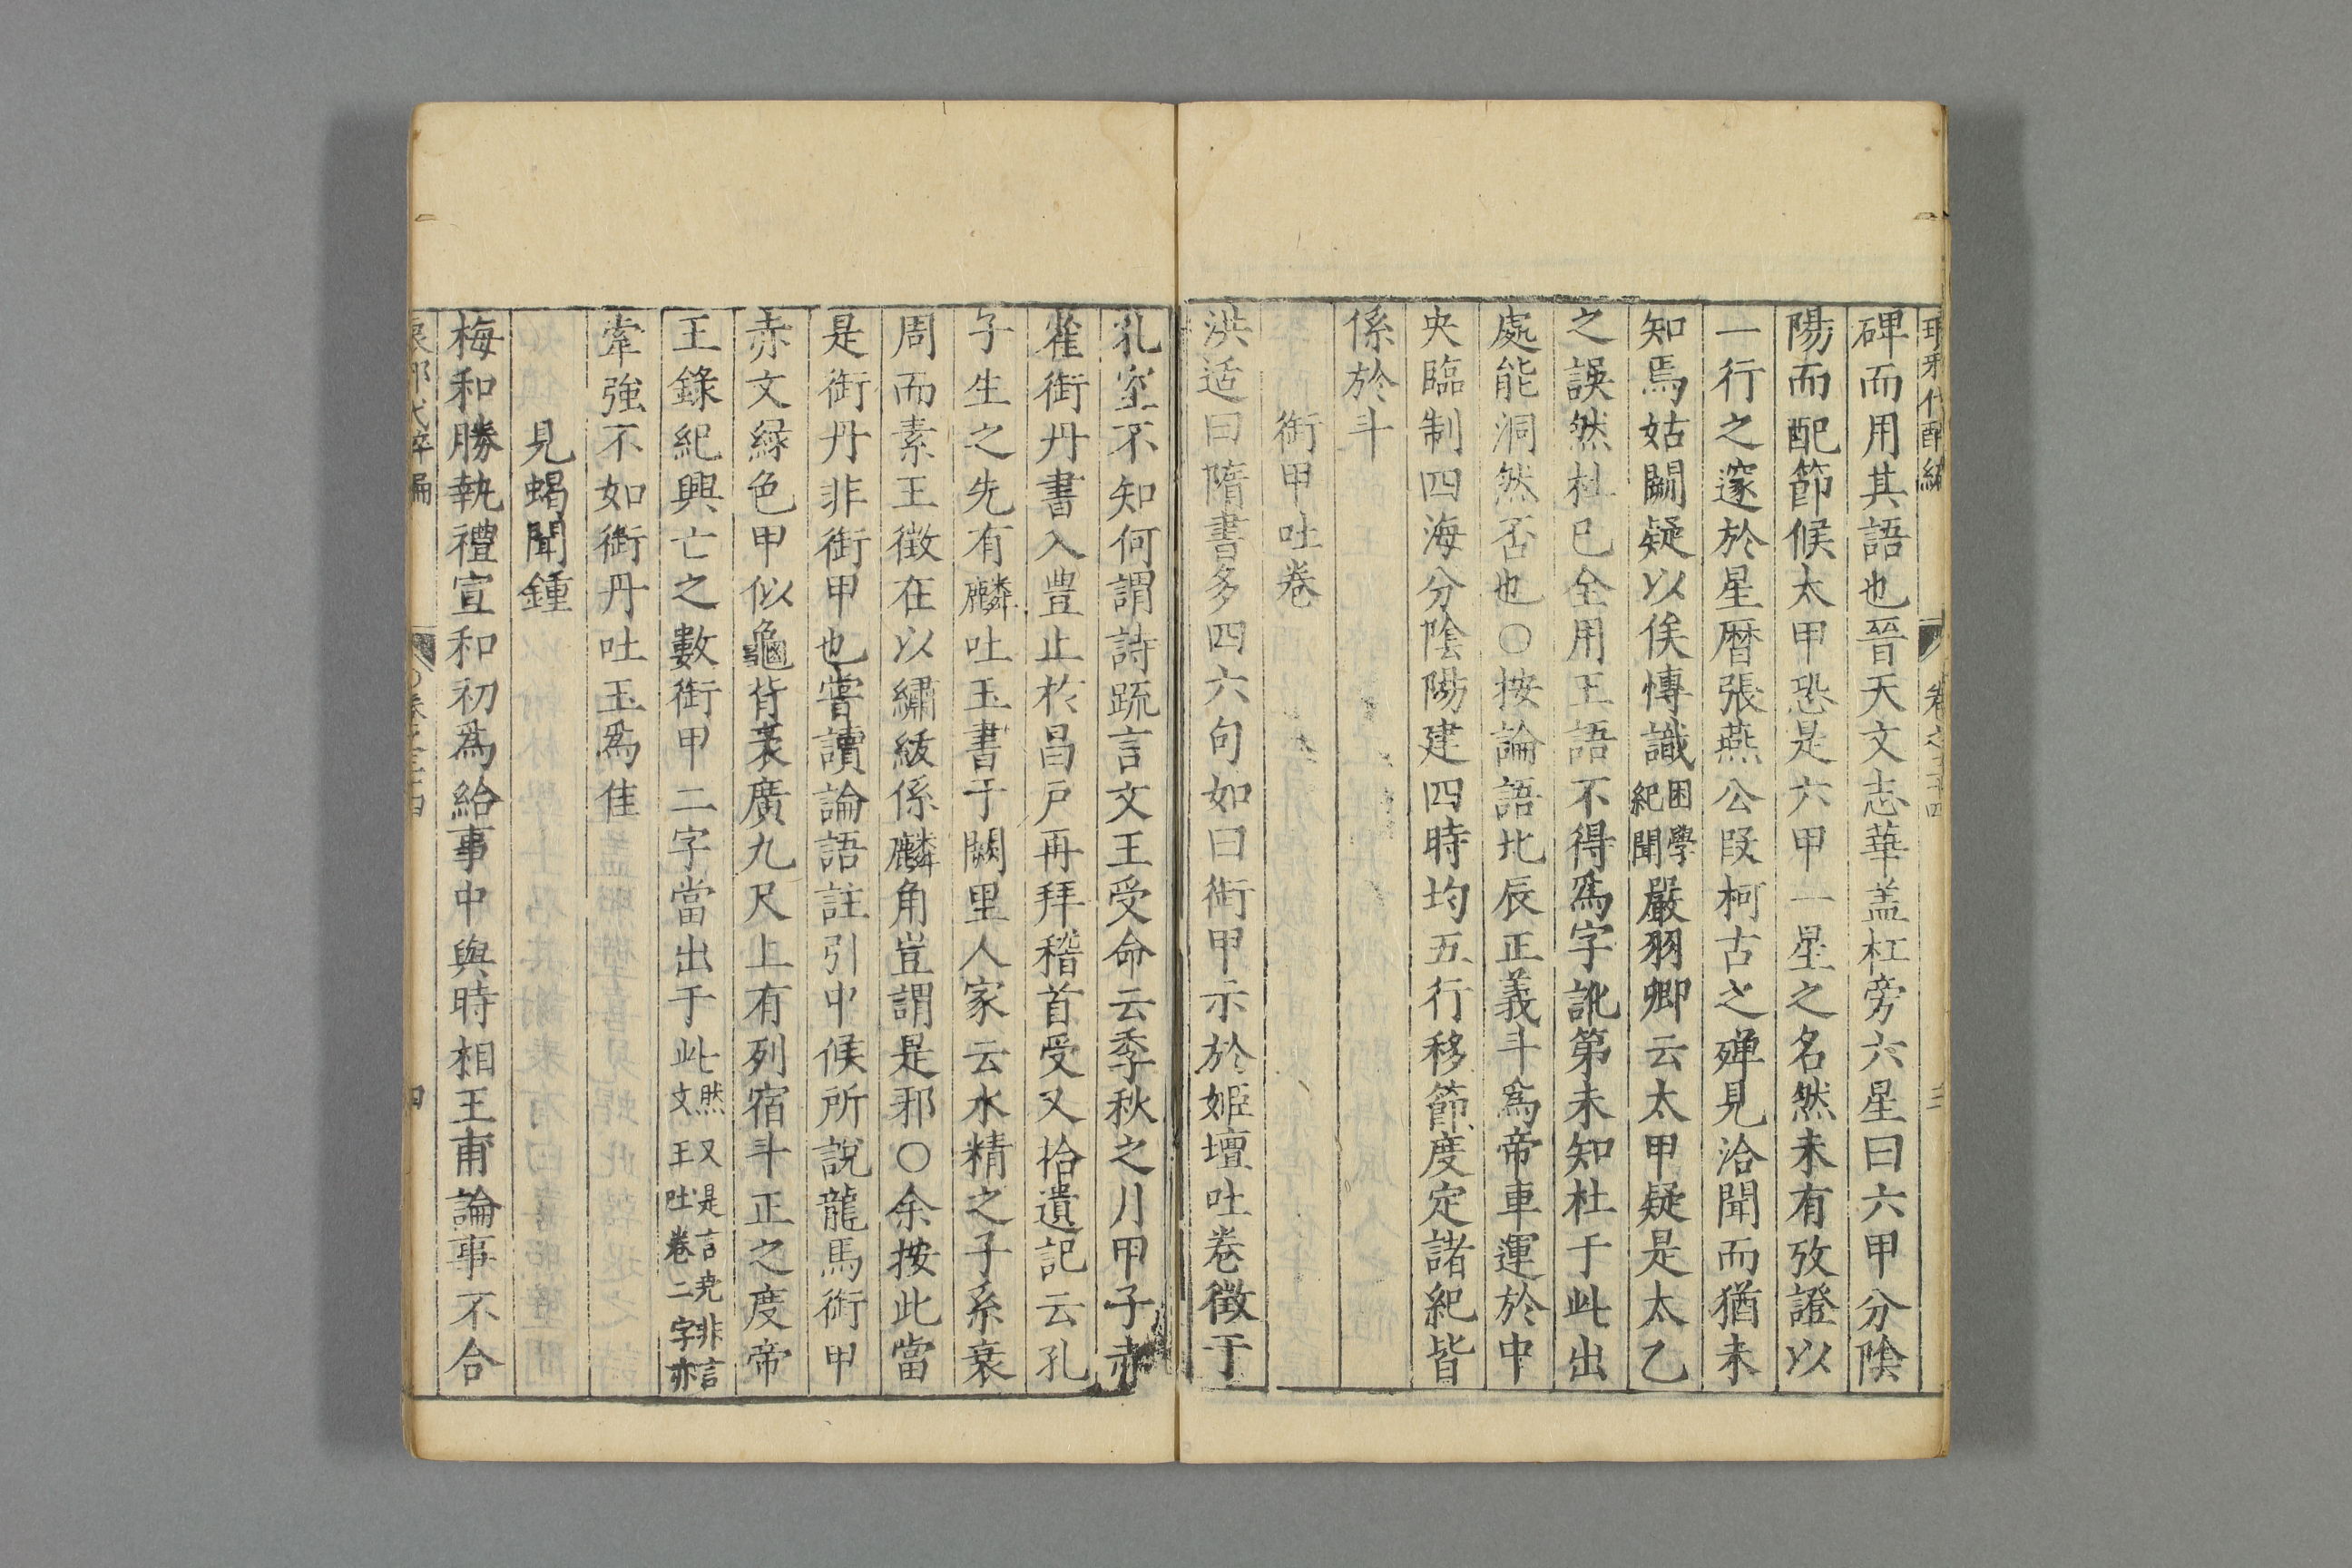 碑而用其語也晉天文志華盖杠旁六星曰六甲分陰
陽而配節候太甲恐是六甲一星之名然未有攷證以
一行之邃於星曆張燕公叚柯古之殫見洽聞而猶未
知焉姑闕疑以俟博識困學紀聞嚴羽卿云太甲疑是太乙
之誤然杜已全用王語不得爲字訛第未知杜于此出
處能洞然否也○按論語北辰正義斗爲帝車運於中
央臨制四海分陰陽建四時均五行移節度定諸紀皆
係於斗
銜甲吐卷
洪适曰隋書多四六句如曰銜甲示於姬壇吐卷徵于
孔室不知何謂詩疏言文王受命云季秋之月甲子赤
雀銜丹書入豊止於昌戶再拜稽首受又拾遺記云孔
子生之先有麟吐玉書于闕里人家云水精之子系衰
周而素王徵在以繡紱係麟角豈謂是邪○余按此當
是銜丹非銜甲也嘗讀論語註引中候所說龍馬銜甲
赤文綠色甲似龜背袤廣九尺上有列宿斗正之度帝
王錄紀興亡之數銜甲二字當出于此然又是言尭非言文王吐卷二字亦
牽強不如銜丹吐玉爲佳
見蝎聞鍾
梅和勝執禮宣和初爲給事中與時相王甫論事不合